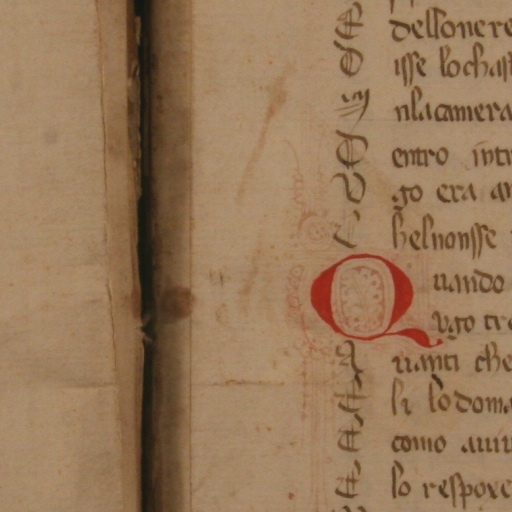 dessonere
isse lo chas
nla camera
entro intr
go era an
helnonsse
Quando
vgo tr
uanti che
li lo doma
como auiu
lo respoxe